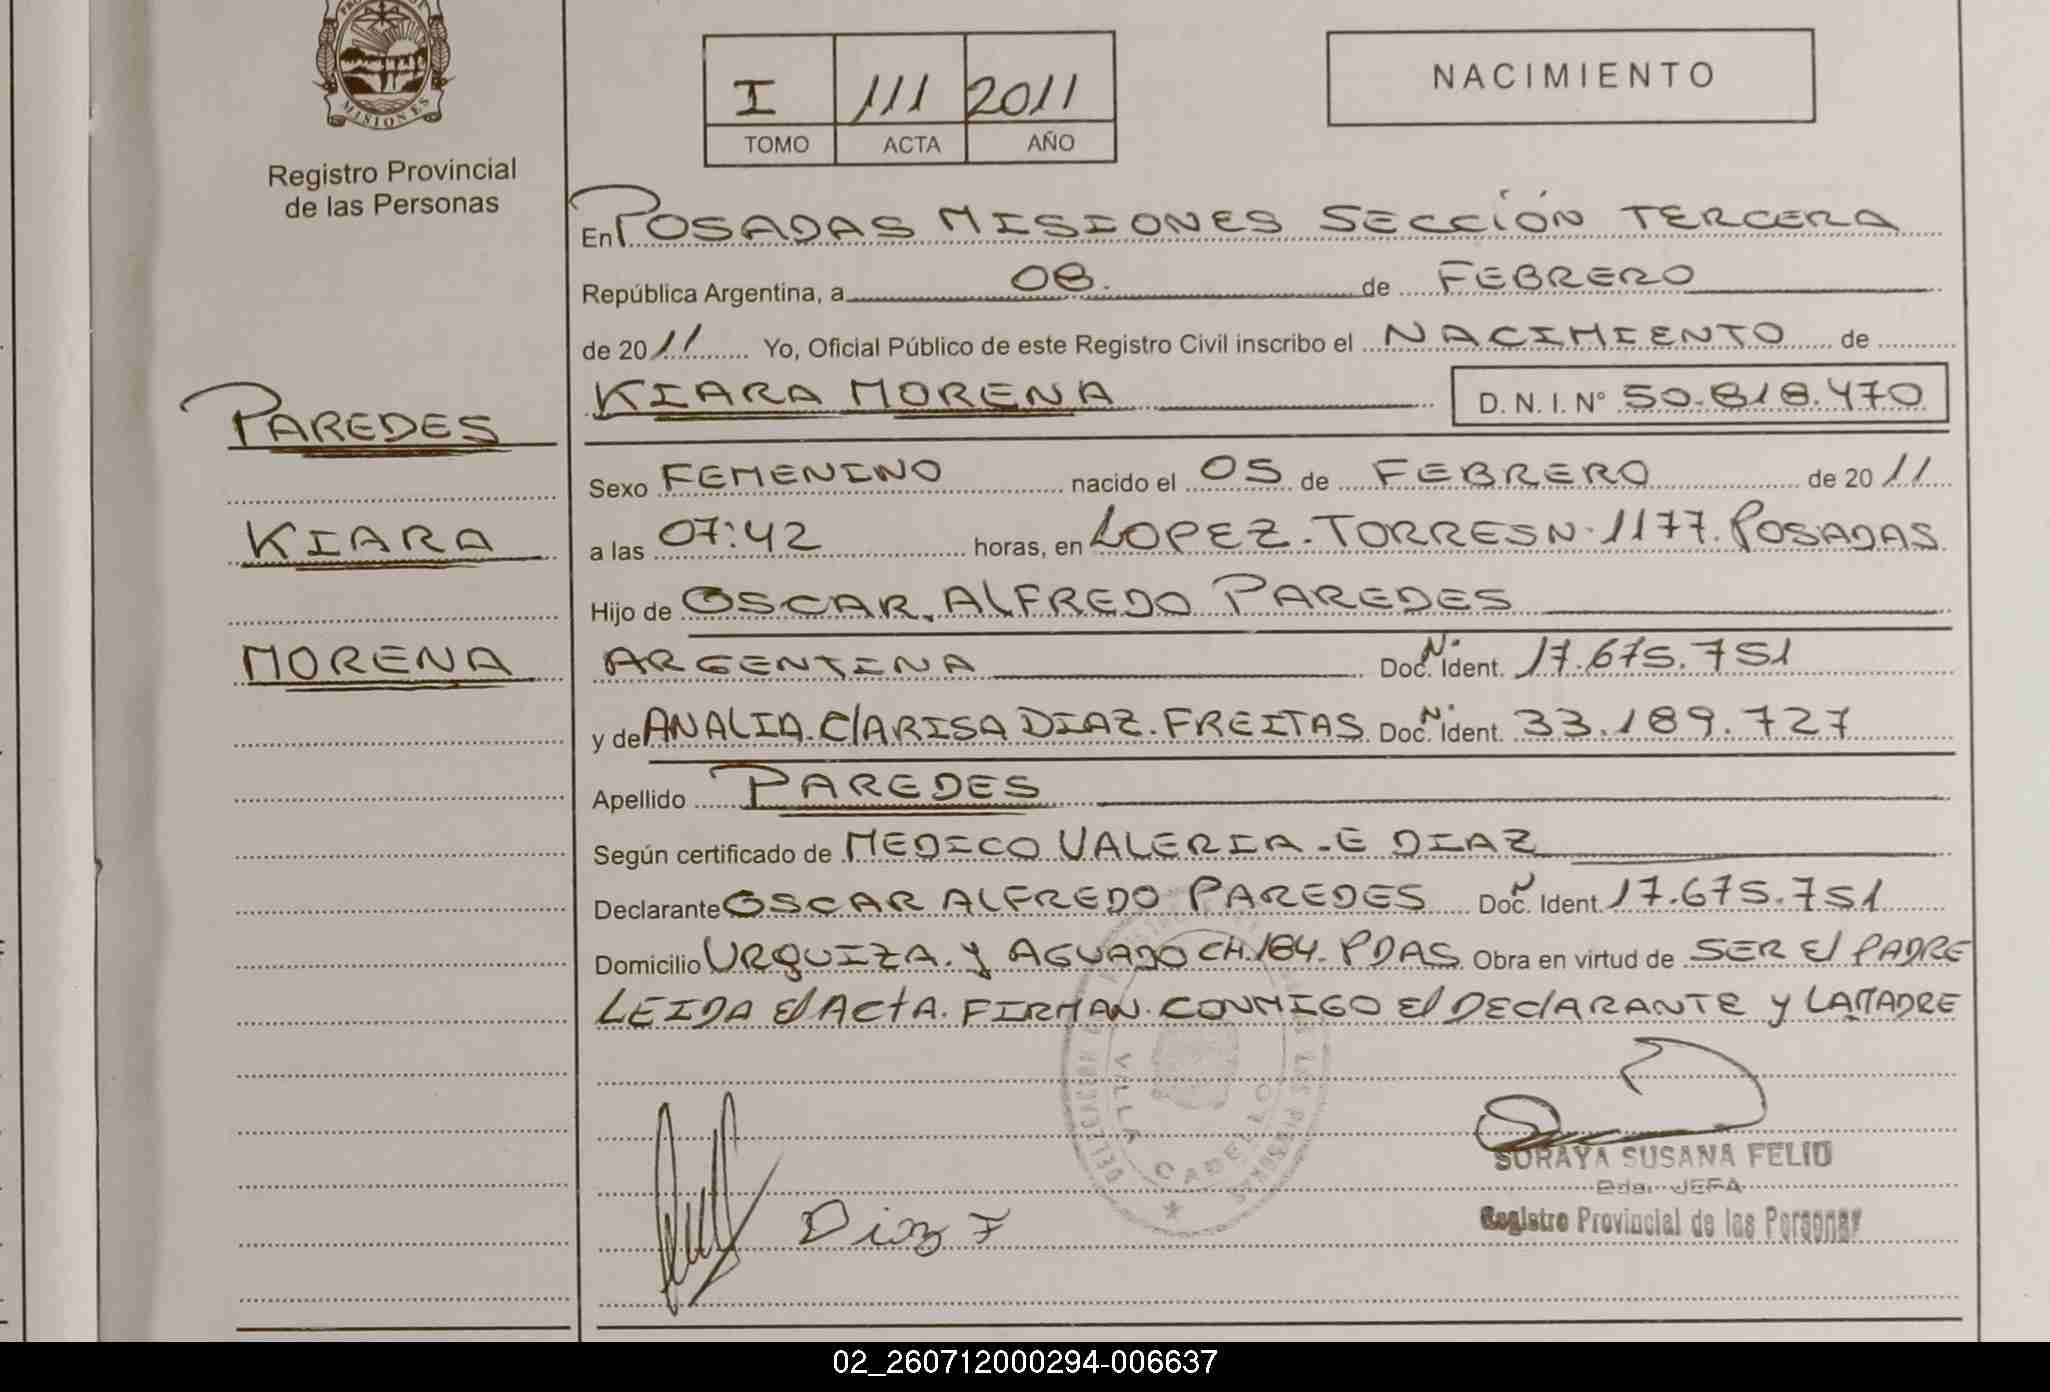 MISIONES
Registro Provincial
de las Personas
I 111 2011
TOMO ACTA AÑO
NACIMIENTO
En POSADAS MISIONES SECCIÓN TERCERA
República Argentina, a 08. de FEBRERO
de 2011 Yo, Oficial Público de este Registro Civil inscribo el NACIMIENTO de
KIARA MORENA D. N. I. N° 50.818.470
PAREDES
KIARA
MORENA
Sexo FEMENINO nacido el 05 de FEBRERO de 2011
a las 07:42 horas, en LOPEZ. TORRES N. 1177. POSADAS
Hijo de OSCAR. ALFREDO PAREDES
ARGENTINA Doc. N. Ident. 17.675.751
y de ANALIA. CLARISA DIAZ. FREITAS Doc. N. Ident. 33.189.727
Apellido PAREDES
Según certificado de MEDICO VALERIA. E DIAZ
Declarante OSCAR ALFREDO PAREDES Doc. N Ident. 17.675.751
Domicilio URQUIZA. y AGUADO CH.184. PDAS Obra en virtud de SER El PADRE
LEIDA El ACtA. FIRMAN. CONMIGO El DEClARANTE y LA MADRE
VILLA CABELLO
Diaz F
SORAYA SUSANA FELIU
JEFA
Registro Provincial de las Personas
02_260712000294-006637